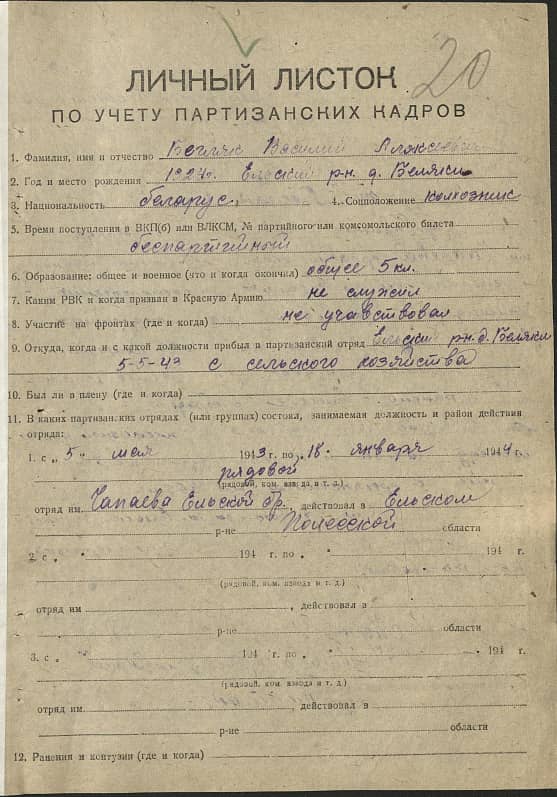 20
ЛИЧНЫЙ ЛИСТОК
ПО УЧЕТУ ПАРТИЗАНСКИХ КАДРОВ
1. Фамилия, имя и отчество Василий
2. Год и место рождения Ельский р-н. д.
3. Национальность беларус. 4. Соцположение колхозник
5. Время поступления в ВКП(б) или ВЛКСМ, № партийного или комсомольского билета
беспартийный
6. Образование: общее и военное (что и когда окончил) общее 5 кл.
7. Каким РВК и когда призван в Красную Армию не служил
8. Участие на фронтах (где и когда) не учавствовал
9. Откуда, когда и с какой должности прибыл в партизанский отряд Ельский р-н. д.
5-5-43 с сельского хозяйства
10. Был ли в плену (где и когда)
11. В каких партизанских отрядах (или группах) состоял, занимаемая должность и район действия
отряда:
1. с „ 5 „ мая 1943 г. по „ 18 „ января 1944 г.
рядовой
(рядовой, ком. взвода и т. д.)
отряд им. Чапаева Ельской бр., действовал в Ельском
р-не Полесской области
2. с „ „ 194 г. по „ „ 194 г.
(рядовой, ком. взвода и т. д.)
отряд им , действовал в
р-не области
3. с „ „ 194 г. по „ „ 194 г.
(рядовой, ком. взвода и т. д.)
отряд им. , действовал в
р-не области
12. Ранения и контузии (где и когда)